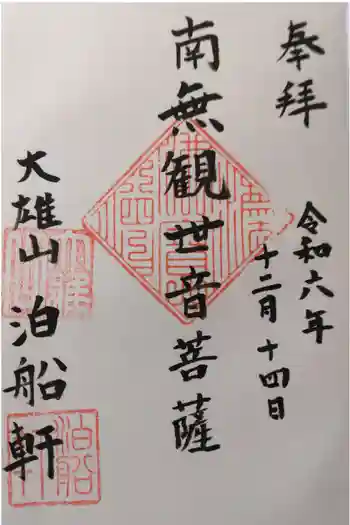 奉拝
令和六年
十二月十四日
南無観世音菩薩
大雄山
泊船軒
泊船軒